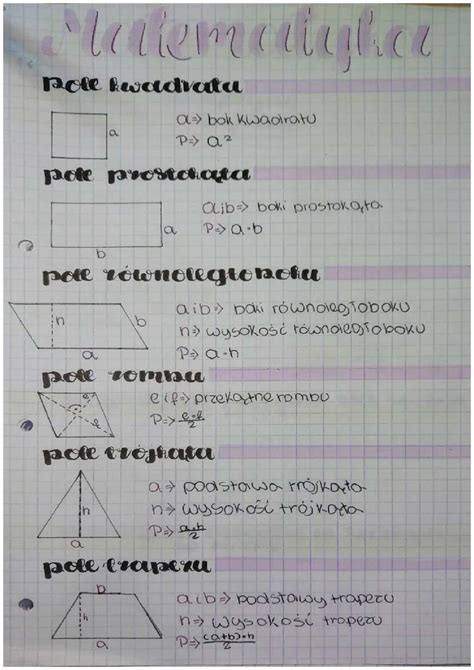 Matematyka
pole kwadratu
a
a => bok kwadratu
P => a²
pole prostokąta
a
b
a i b => boki prostokąta
P => a·b
pole równoległoboku
h
b
a
a i b => boki równoległoboku
h => wysokość równoległoboku
P => a·h
pole rombu
e
f
e i f => przekątne rombu
P => e·f/2
pole trójkąta
h
a
a => podstawa trójkąta
h => wysokość trójkąta
P => a·h/2
pole trapezu
b
h
a
a i b => podstawy trapezu
h => wysokość trapezu
P => (a+b)·h/2